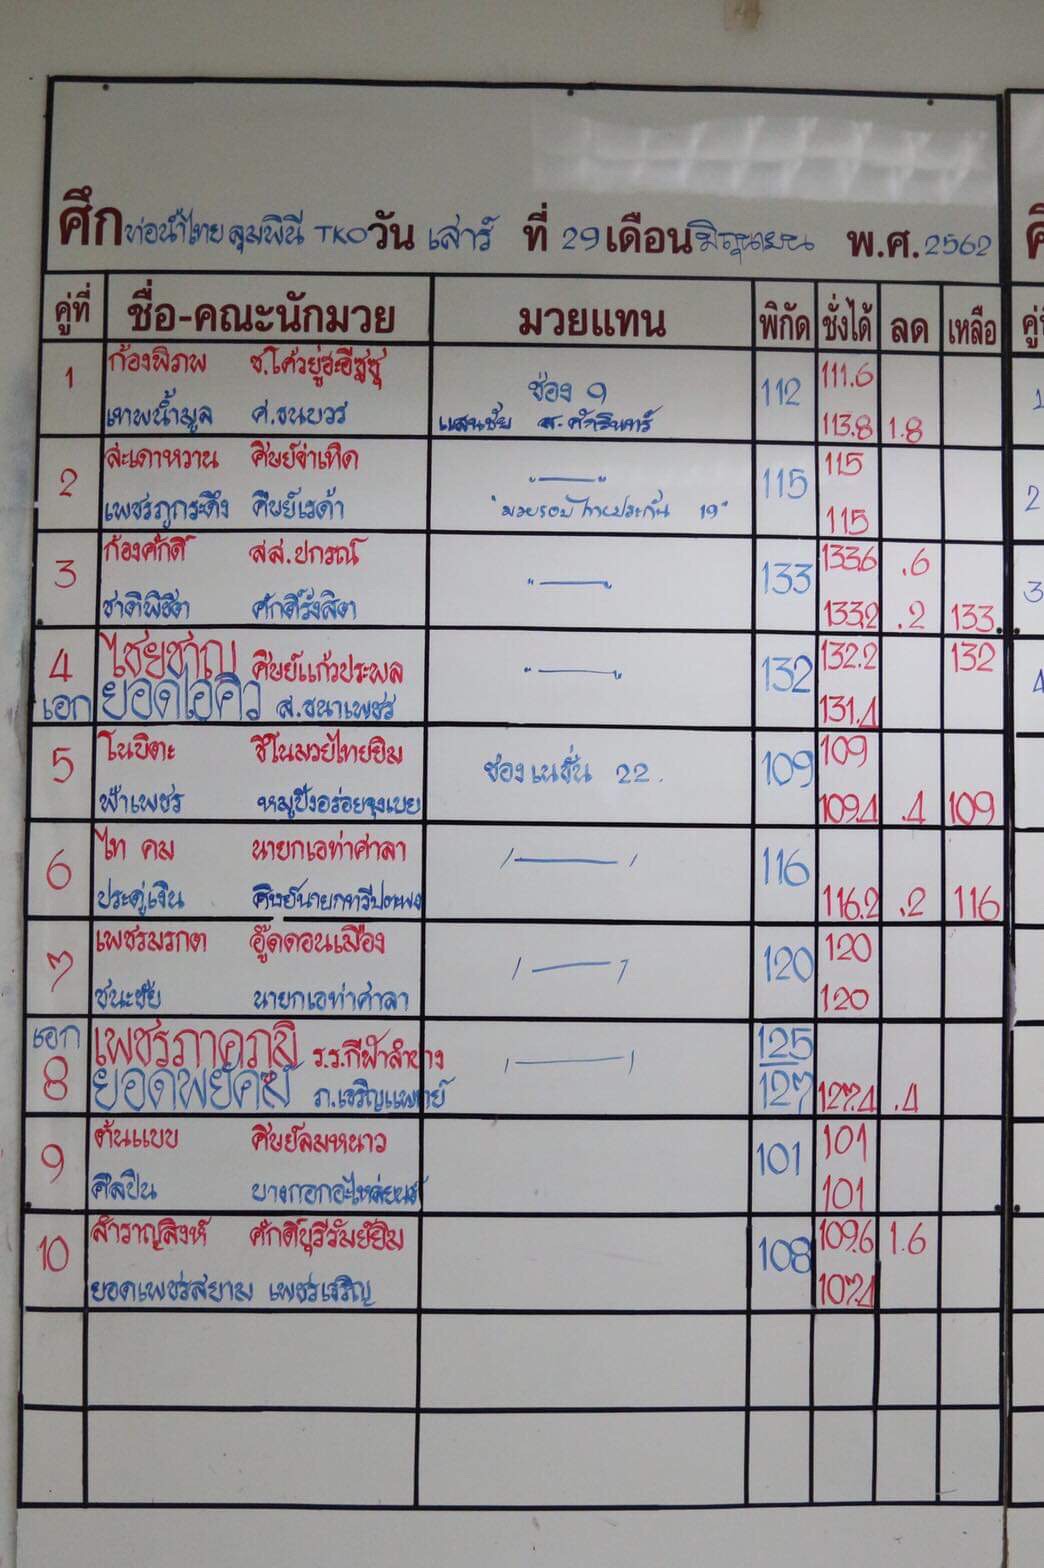 ศึก ท่อน้ำไทย ลุมพินี TKO วัน เสาร์ ที่ 29 เดือน มิถุนายน พ.ศ. 2562
คู่ที่ ชื่อ-คณะนักมวย มวยแทน พิกัด ชั่งได้ ลด เหลือ
1 ก้องพิภพ ช่อง 9 112 111.6
เทพน้ำมูล ศ.ธนบวร แสนชัย 113.8 1.8
2 สะเดาหวาน ศิษย์จ่าเทิด "———" 115 115
เพชรภูกระดึง ศิษย์เรด้า "มวยรอบ 19" 115
3 ก้องศักดิ์ ส่ส.ปกรณ์ "———" 133 133.6 .6
ชาติพิชิต ศักดิ์รังสิต 133.2 .2 133
4 ไชยชาญ ศิษย์แก้วประพล "———" 132 132.2 132
เอก ยอดไอคิว ส.ธนาเพชร 131.4
5 โนบิตะ ชิโนมวยไทยยิม ช่องเนชั่น 22. 109 109
ฟ้าเพชร หมูปิ้งอร่อยจุงเบย 109.4 .4 109
6 ไท คม นายกเอท่าศาลา /———/ 116
ประดู่เงิน 116.2 .2 116
7 เพชรมรกต อู๊ดดอนเมือง /———/ 120 120
ชนะชัย นายกเอท่าศาลา 120
เอก เพชรภาคภูมิ ร.ร.กีฬาลำปาง /———/ 125
8 ยอดพยัคฆ์ ภ.เจริญแพทย์ 127 127.4 .4
9 ต้นแบบ ศิษย์ลมหนาว 101 101
ศิลปิน 101
10 สำราญสิงห์ ศักดิ์บุรีรัมย์ยิม 108 109.6 1.6
ยอดเพชรสยาม เพชรเจริญ 107.4
1
2
3
4